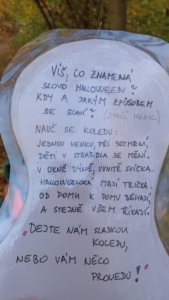 VÍŠ, CO ZNAMENÁ
SLOVO HALLOWEEN?
KDY A JAKÝM ZPŮSOBEM
SE SLAVÍ?
NAUČ SE KOLEDU:
JEDNOU VENKU, PŘI SETMĚNÍ,
DĚTI V STRAŠIDLA SE MĚNÍ.
V OKNĚ DÝNĚ, UVNITŘ SVÍČKA.
HALLOWEENSKÁ MAJÍ TRIČKA.
OD DOMU K DOMU BĚHAJÍ
A STEJNĚ VŠEM ŘÍKAJÍ:
"DEJTE NÁM SLADKOU
KOLEDU,
NEBO VÁM NĚCO
PROVEDU!"